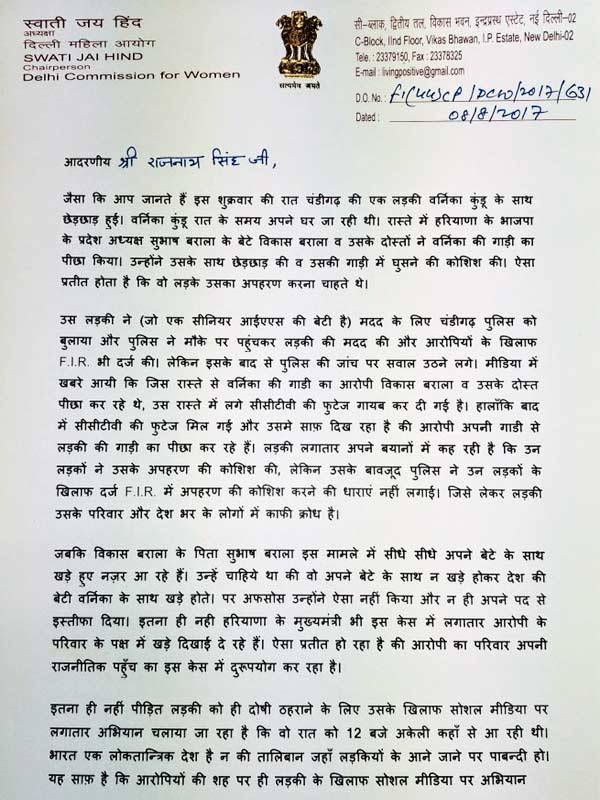 स्वाती जय हिंद
अध्यक्ष
दिल्ली महिला आयोग
SWATI JAI HIND
Chairperson
Delhi Commission for Women
सत्यमेव जयते
सी-ब्लाक, द्वितीय तल, विकास भवन, इन्द्रप्रस्थ एस्टेट, नई दिल्ली-02
C-Block, IInd Floor, Vikas Bhawan, I.P. Estate, New Delhi-02
Tele. : 23379150, Fax : 23378325
E-mail : livingpositive@gmail.com
D.O. No. : /DCW/2017/631
Dated : 08/8/2017
आदरणीय श्री राजनाथ सिंह जी,
जैसा कि आप जानते हैं इस शुक्रवार की रात चंडीगढ़ की एक लड़की वर्निका कुंडू के साथ
छेड़छाड़ हुई। वर्निका कुंडू रात के समय अपने घर जा रही थी। रास्ते में हरियाणा के भाजपा
के प्रदेश अध्यक्ष सुभाष बराला के बेटे विकास बराला व उसके दोस्तों ने वर्निका की गाड़ी का
पीछा किया। उन्होंने उसके साथ छेड़छाड़ की व उसकी गाड़ी में घुसने की कोशिश की। ऐसा
प्रतीत होता है कि वो लड़के उसका अपहरण करना चाहते थे।
उस लड़की ने (जो एक सीनियर आईएएस की बेटी है) मदद के लिए चंडीगढ़ पुलिस को
बुलाया और पुलिस ने मौके पर पहुंचकर लड़की की मदद की और आरोपियों के खिलाफ
F.I.R. भी दर्ज की। लेकिन इसके बाद से पुलिस की जांच पर सवाल उठने लगे। मीडिया में
खबरे आयी कि जिस रास्ते से वर्निका की गाड़ी का आरोपी विकास बराला व उसके दोस्त
पीछा कर रहे थे, उस रास्ते में लगे सीसीटीवी की फुटेज गायब कर दी गई है। हालाँकि बाद
में सीसीटीवी की फुटेज मिल गई और उसमे साफ़ दिख रहा है की आरोपी अपनी गाडी से
लड़की की गाड़ी का पीछा कर रहे हैं। लड़की लगातार अपने बयानों में कह रही है कि उन
लड़कों ने उसके अपहरण की कोशिश की, लेकिन उसके बावजूद पुलिस ने उन लड़कों के
खिलाफ दर्ज F.I.R. में अपहरण की कोशिश करने की धाराएं नहीं लगाई। जिसे लेकर लड़की
उसके परिवार और देश भर के लोगों में काफी क्रोध है।
जबकि विकास बराला के पिता सुभाष बराला इस मामले में सीधे सीधे अपने बेटे के साथ
खड़े हुए नज़र आ रहे हैं। उन्हें चाहिये था की वो अपने बेटे के साथ न खड़े होकर देश की
बेटी वर्निका के साथ खड़े होते। पर अफसोस उन्होंने ऐसा नहीं किया और न ही अपने पद से
इस्तीफा दिया। इतना ही नही हरियाणा के मुख्यमंत्री भी इस केस में लगातार आरोपी के
परिवार के पक्ष में खड़े दिखाई दे रहे हैं। ऐसा प्रतीत हो रहा है की आरोपी का परिवार अपनी
राजनीतिक पहुँच का इस केस में दुरूपयोग कर रहा है।
इतना ही नहीं पीड़ित लड़की को ही दोषी ठहराने के लिए उसके खिलाफ सोशल मीडिया पर
लगातार अभियान चलाया जा रहा है कि वो रात को 12 बजे अकेली कहाँ से आ रही थी।
भारत एक लोकतान्त्रिक देश है न की तालिबान जहाँ लड़कियों के आने जाने पर पाबन्दी हो।
यह साफ़ है कि आरोपियों की शह पर ही लड़की के खिलाफ सोशल मीडिया पर अभियान